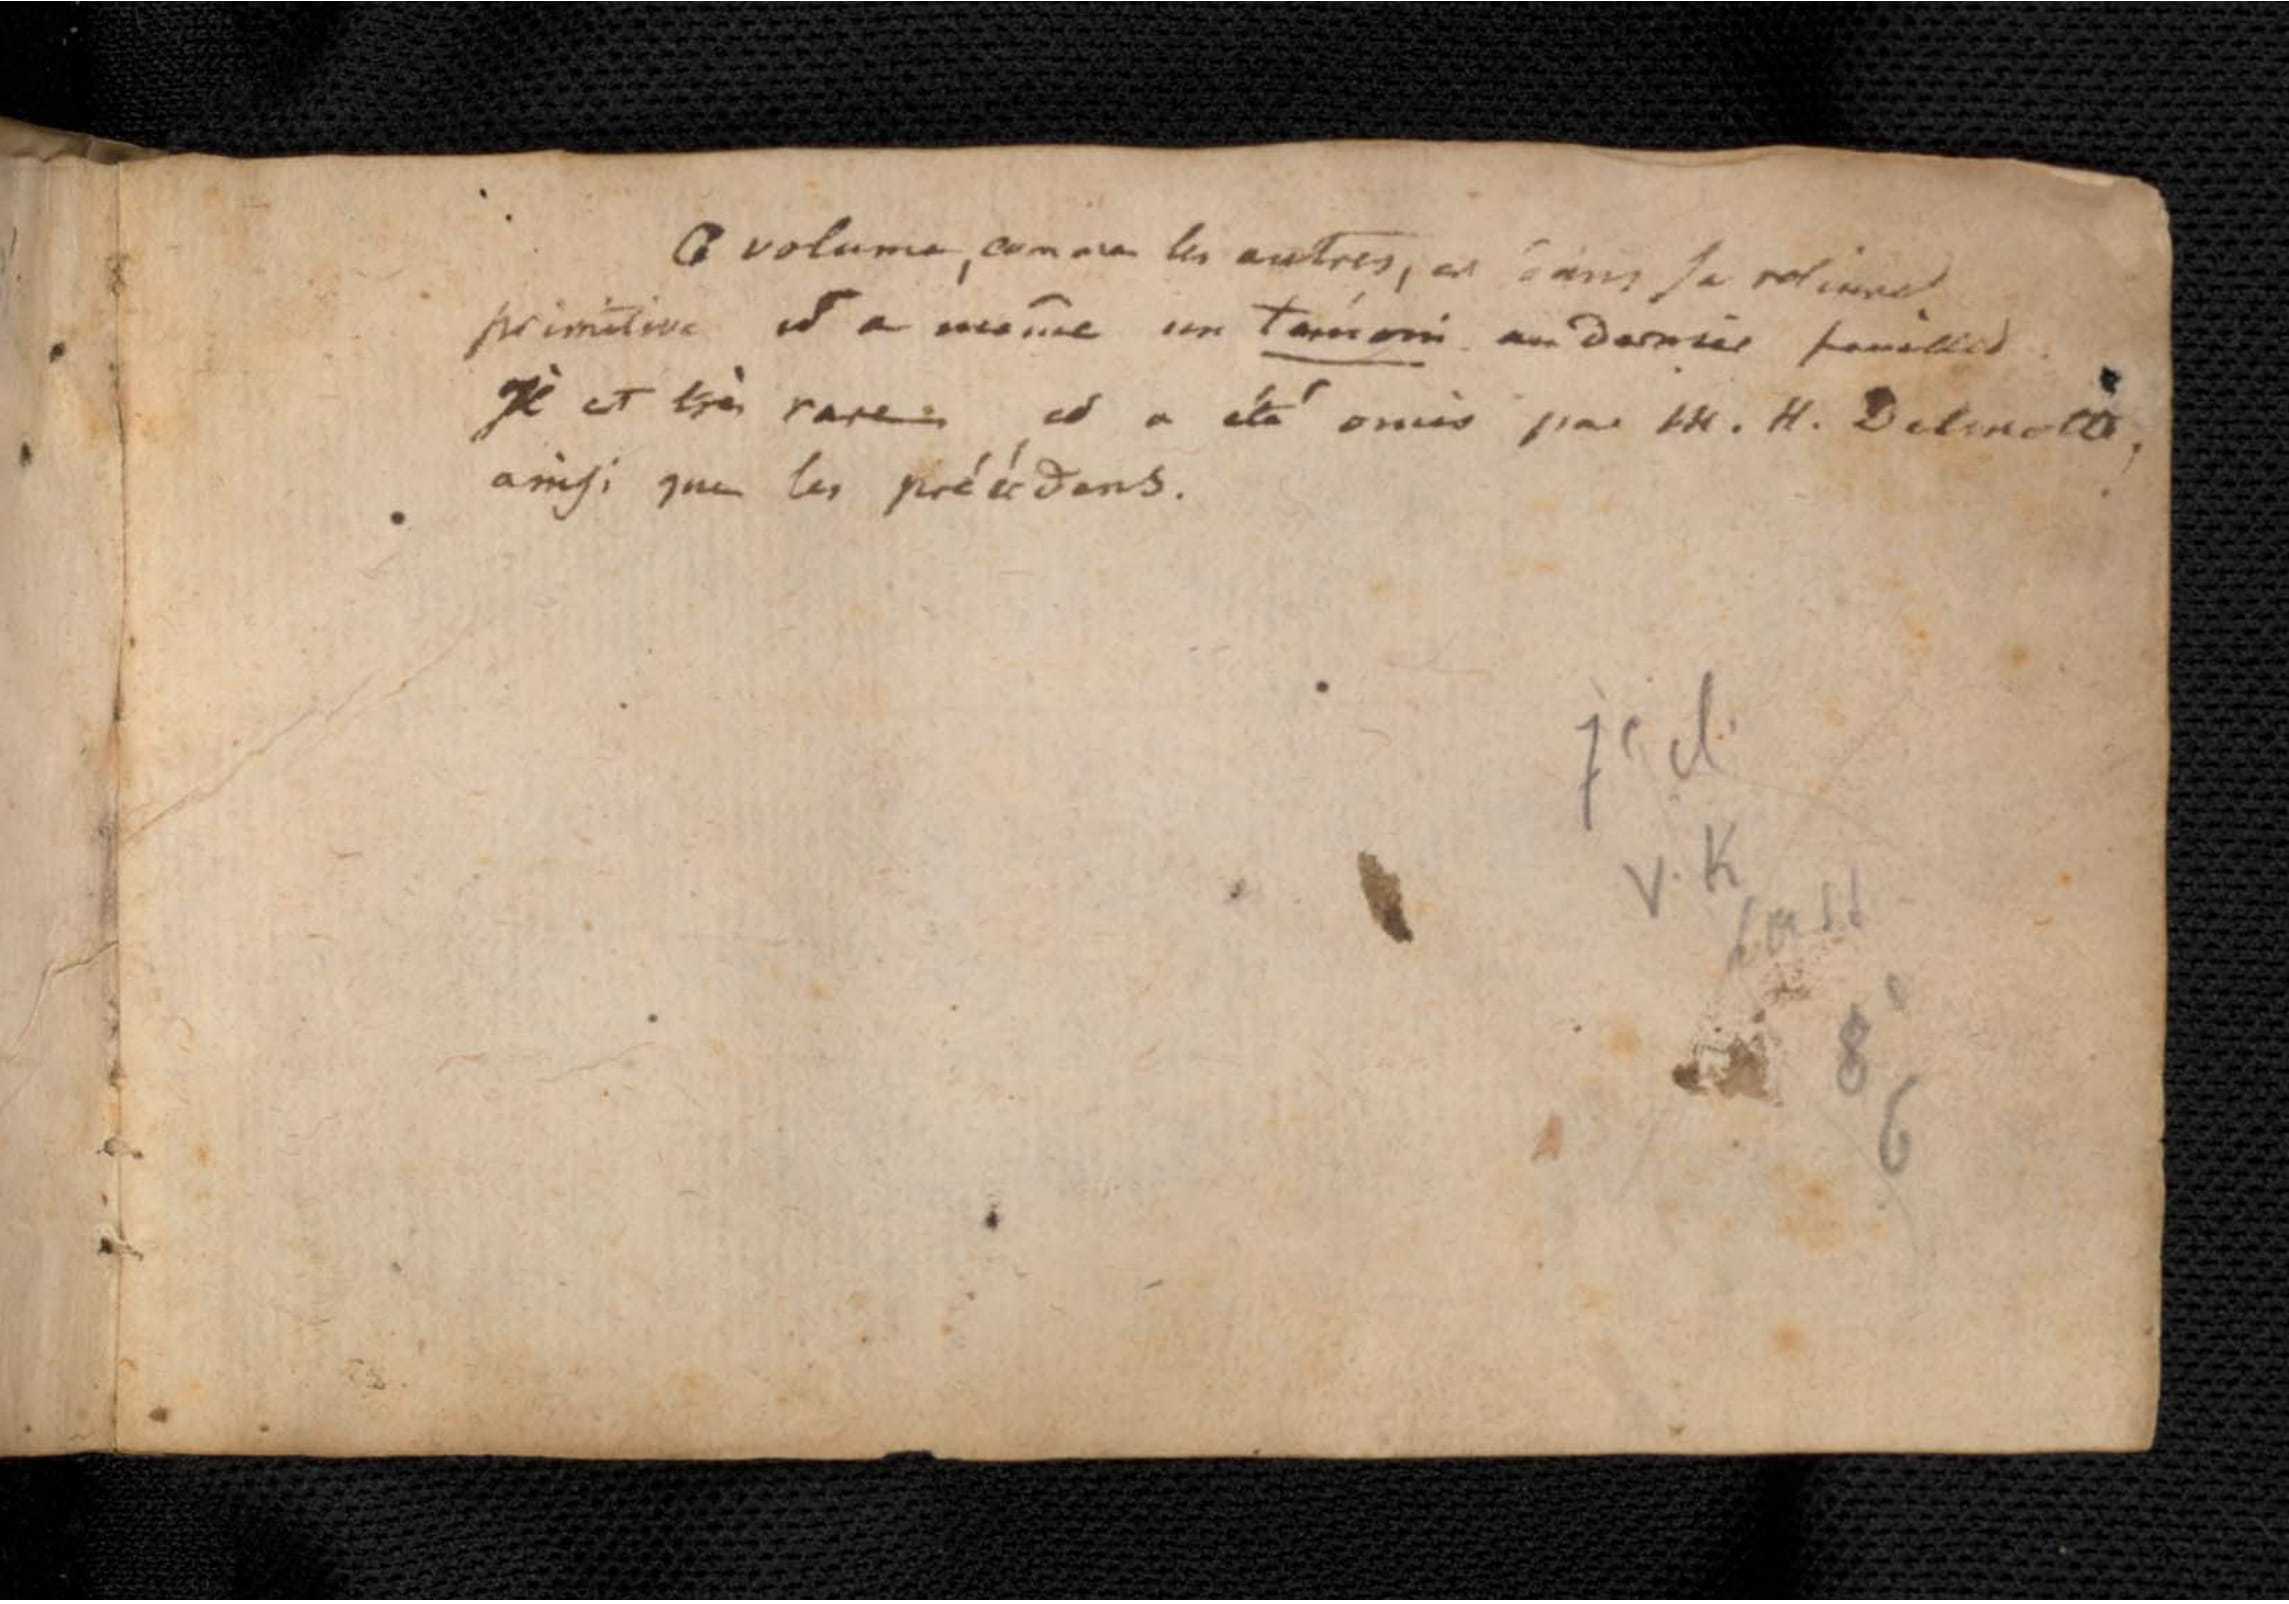 Ce volume, comme les autres, est dans sa reliure
primitive et a même un témoin au dernier feuillet.
Il est très rare et a été omis par M. H. Delmotte,
ainsi que les précédens.
V. K
8
6